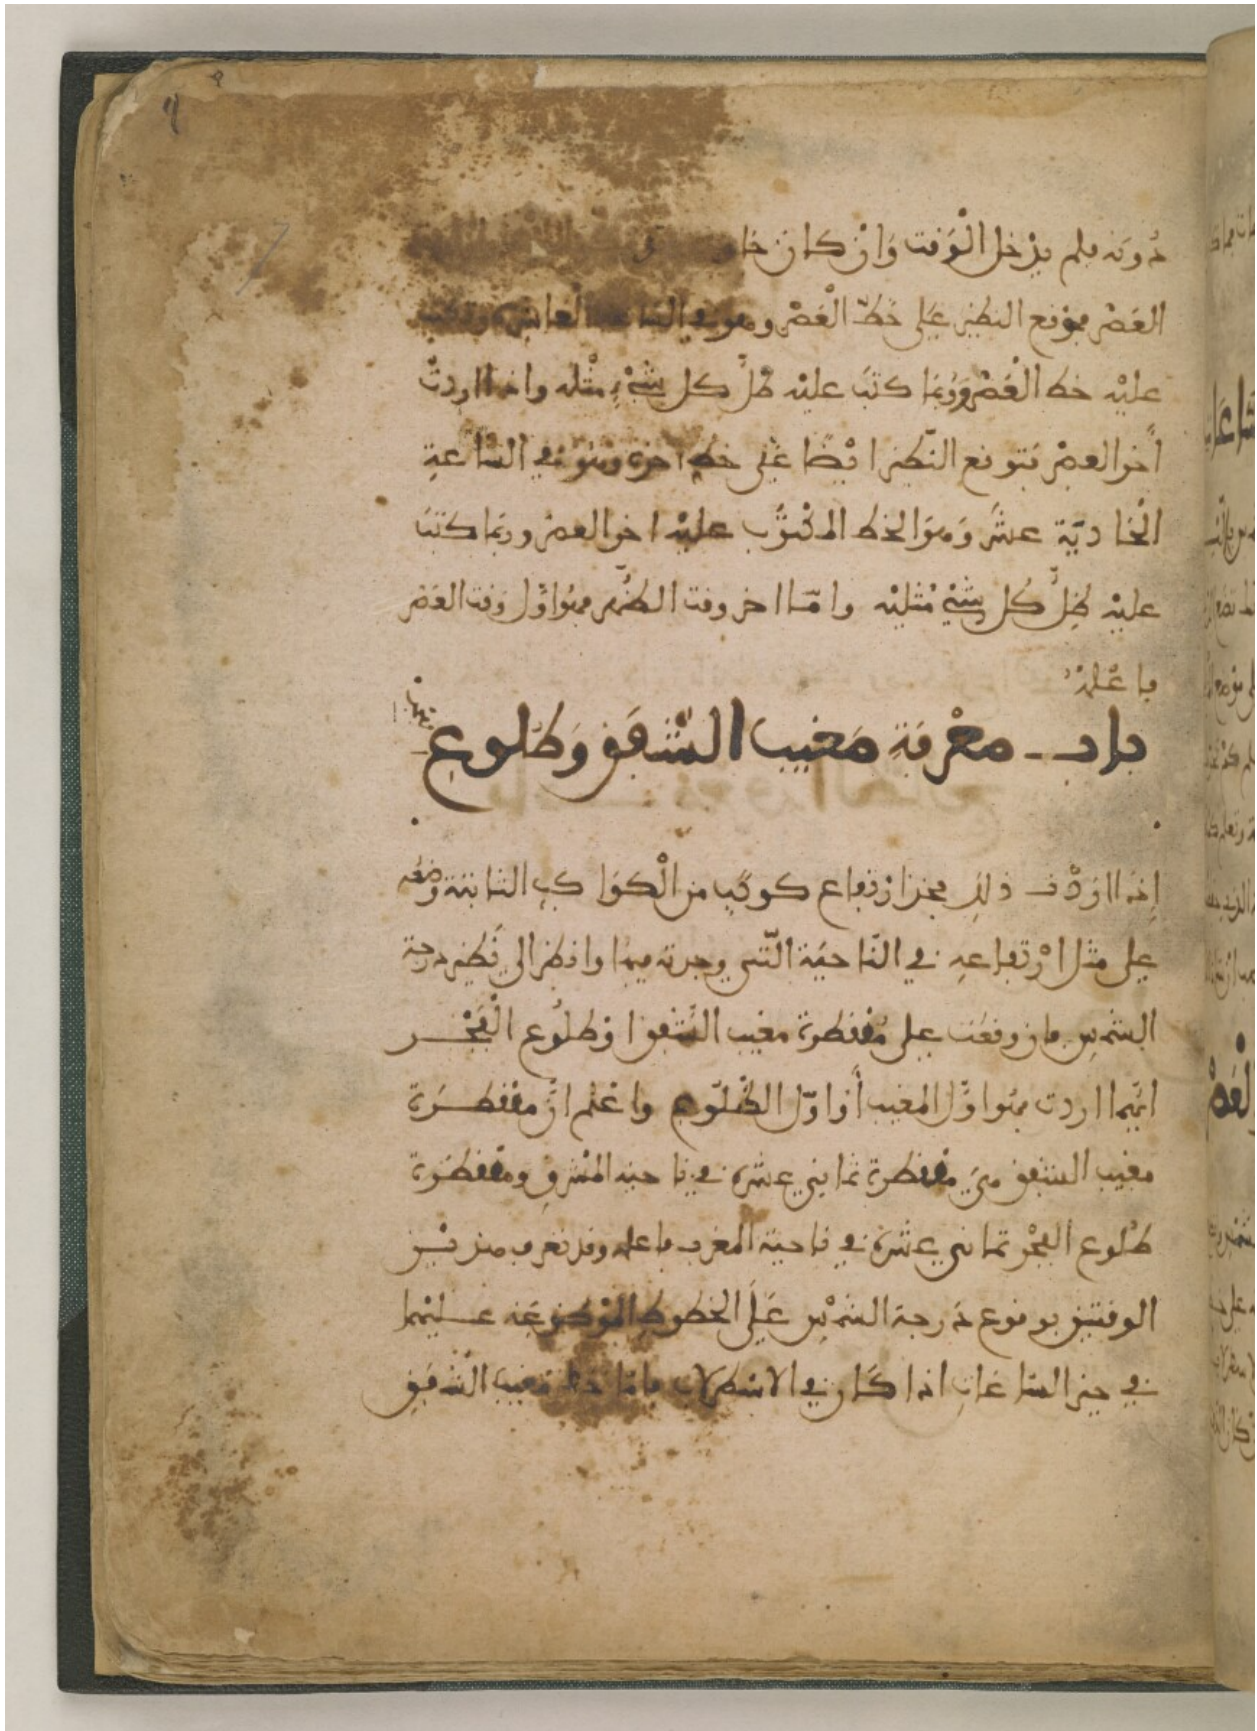 دُونه فلم يدْخل الْوَقت وَانْ كان
العَصْر فموْقع النظير عَلى خَطّ الْعَصْر وهو في السّاعة العاشرة وتكتب
عليْه خط العَصْر وَرُبّما كتبَ عليْه ظلّ كل شيْءٍ مثْله واذا اردتَّ
اٰخر العصْر فتوقع النّظير ايْضًا عَلى خط اخره وهو في السّاعةِ
الْحَاديَة عشَر وَهوَ الخط المكْتوُب عليْه اخر العصْر وربّما كتبَ
عليْه ظِلّ كُل شيْءٍ مثْليْه وامّا اخر وقت الظهر فهُو اوّل وَقت العَصْر
فاعْلمْ
باب معْرفَةِ مَغيب الشّفَق وَطُلوع
الفجر
إذَا اَرَدْتَ ذلكِ فخذ ارْتفاع كوكَبٍ من الْكَوَاكب الثابتة وَضعْه
على مثْل ارْتفاعهِ في النّاحيَة الّتي وجدته فيها وانظر الى نَظير درجة
الشمْسِ فان وقعَت على مُقنطرة مغيب الشّفق اوْ طلُوع الْفَجْر
ايّهما اردت فهُو اوَّل المغيب أَوْ اوّل الطّلُوع واعْلم انَّ مقنطرَة
مغيب الشفق هيَ مقنطرة ثمانيَ عشرة في ناحية المشْرقِ ومقنطَرة
طلُوع الفجْر ثماني عشْرة في ناحية المغرب فاعلم وقد تعرف هذيْن
الوقتيْن بوقوع دَرجة الشمْسِ عَلَى الخطوط الموْضوعَة عليْهما
في حيز السّاعَاتِ اذا كَان في الاسْطرلاب فامّا خط مَغيب الشّفَقِ